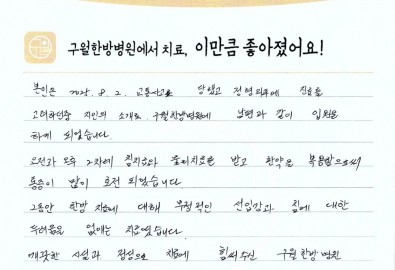 구월한방병원에서 치료, 이만큼 좋아졌어요!
본인은 2025. 8. 2. 교통사고를 당했고 정형외과에 진료를
고려하던중 지인의 소개로 구월한방병원에 남편과 같이 입원을
하게 되었습니다
오전과 오후 2차례 침치료와 물리치료를 받고 한약을 복용함으로써
통증이 많이 호전 되었습니다.
그동안 한방 치료에 대해 부정적인 선입감과 침에 대한
두려움을 없애는 치료였습니다
깨끗한 시설과 정성으로 치료에 힘써주신 구월한방병원